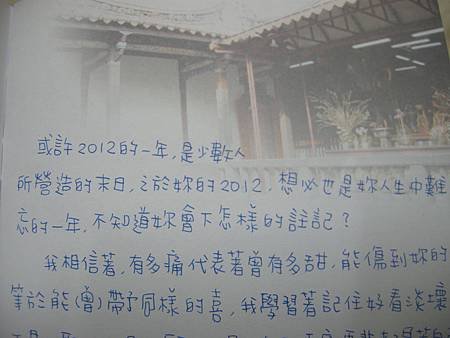 或許2012的一年,是少數人
所營造的末日,之於妳的2012,想必也是妳人生中難
忘的一年,不知道妳會下怎樣的註記?
我相信著,有多痛代表著曾有多甜,能傷到妳的
等於能(曾)帶予同樣的喜,我學習著記住好看淡壞